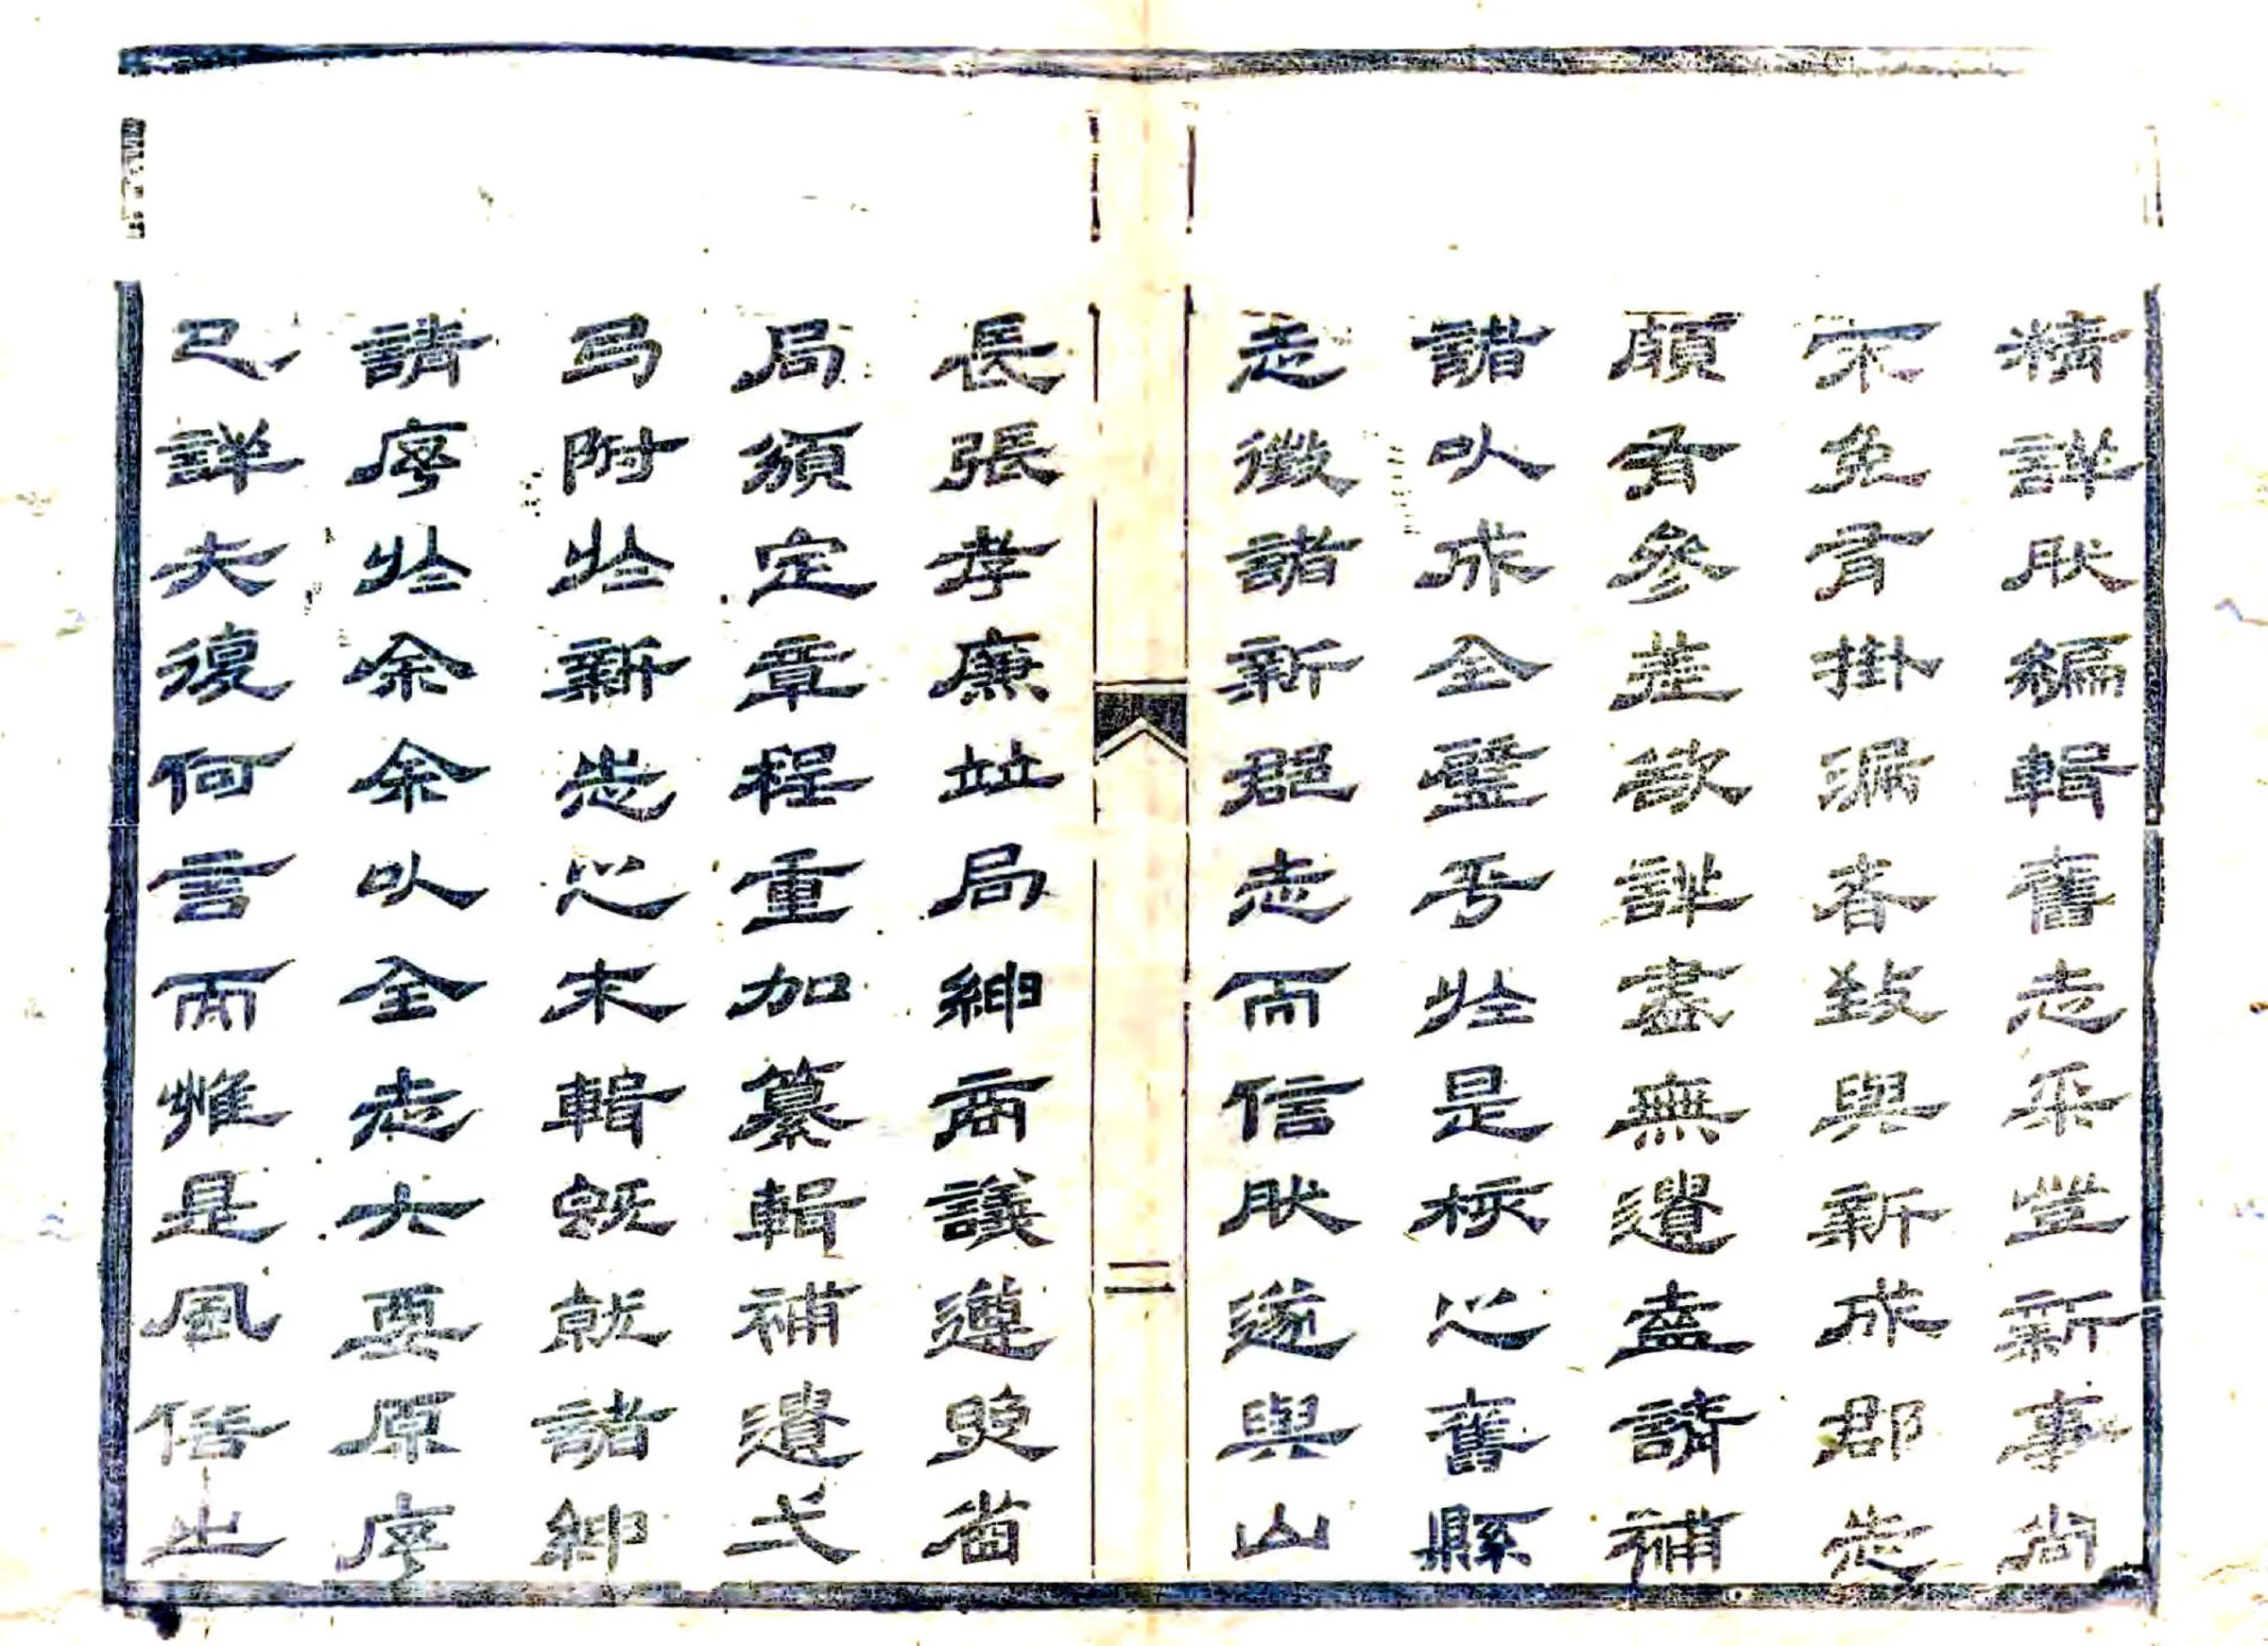 精詳肰編輯舊志采新事尚
不免有掛漏者致與新成郡志
頗有參差欲詳盡無遺盍請補
諸以成全璧乎於是核之舊縣
志徵諸新郡志而信肰遂與山
二
長張孝廉竝局紳商議遵照省
局頒定章程重加纂輯補遺弍
弓附於新志之末輯既就諸紳
請序於余余以全志大要原序
已詳夫復何言而惟是風俗之